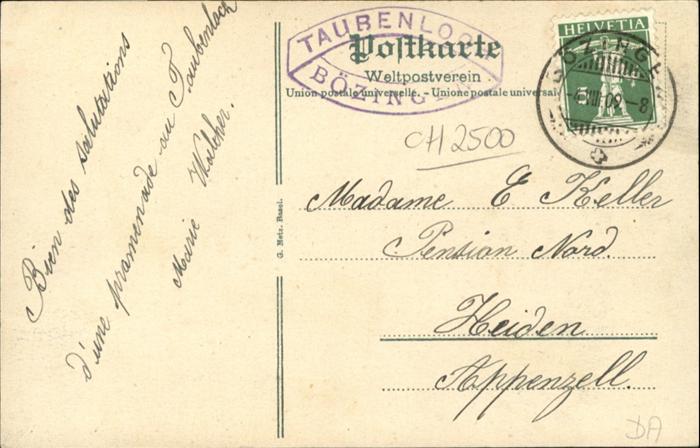 Bien des salutations
d'une promenade au Taubenloch
Marie Walcher.
TAUBENLOCH
BÖZINGEN
Postkarte
Weltpostverein
Union postale universelle. - Unione postale universale
HELVETIA
5
BÖZINGEN
VIII 09 - 8
CH 2500
Madame E Keller
Pension Nord.
Heiden
Appenzell.
G. Metz, Basel.
DA